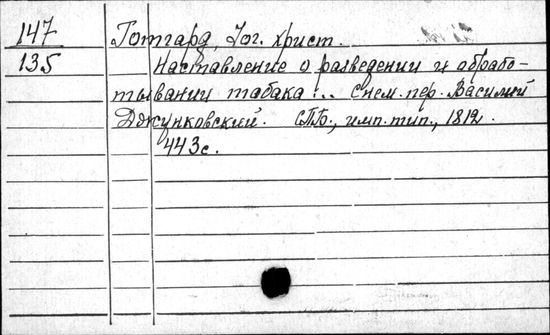 147 Готгард, Иог. Христ.
135 Наставление о разведении и обрабо-
тывании табака... с нем. пер. Василий
Джунковский. СПб., имп. тип., 1812.
443 с.